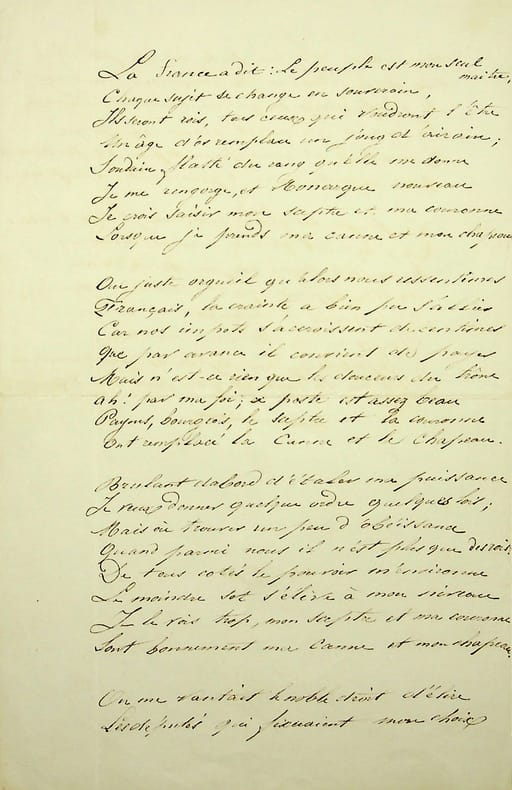 La France a dit: Le peuple est mon seul
maitre,
Chaque sujet se change en souverain,
Ils seront rois, tous ceux qui voudront l'être
Un âge d'or remplace un joug d'airain;
Soudain, flatté du rang qu'elle me donne
Je me rengorge, et Monarque nouveau
Je crois saisir mon sceptre et ma couronne
Lorsque je prends ma canne et mon chapeau
Au juste orgueil qu'alors nous ressentimes
Français, la crainte a bien pu s'allier
Car nos impots s'accroissent de centimes
Que par avance il convient de payer
Mais n'est-ce rien que les douceurs du trône
ah! par ma foi; ce poste est assez beau
Payons, bourgeois, le sceptre et la couronne
Ont remplacé la Canne et le Chapeau.
Brulant d'abord d'étaler ma puissance
Je veux donner quelque ordre quelques lois;
Mais où trouver un peu d'obéissance
Quand parmi nous il n'est plus que des rois
De tous cotés le pouvoir m'environne
Le moindre sot s'élève à mon niveau
Je le vois trop, mon sceptre et ma couronne
Sont bonnement ma canne et mon chapeau.
On me vantait le noble droit d'élire
Les députés qui fixaient mon choix